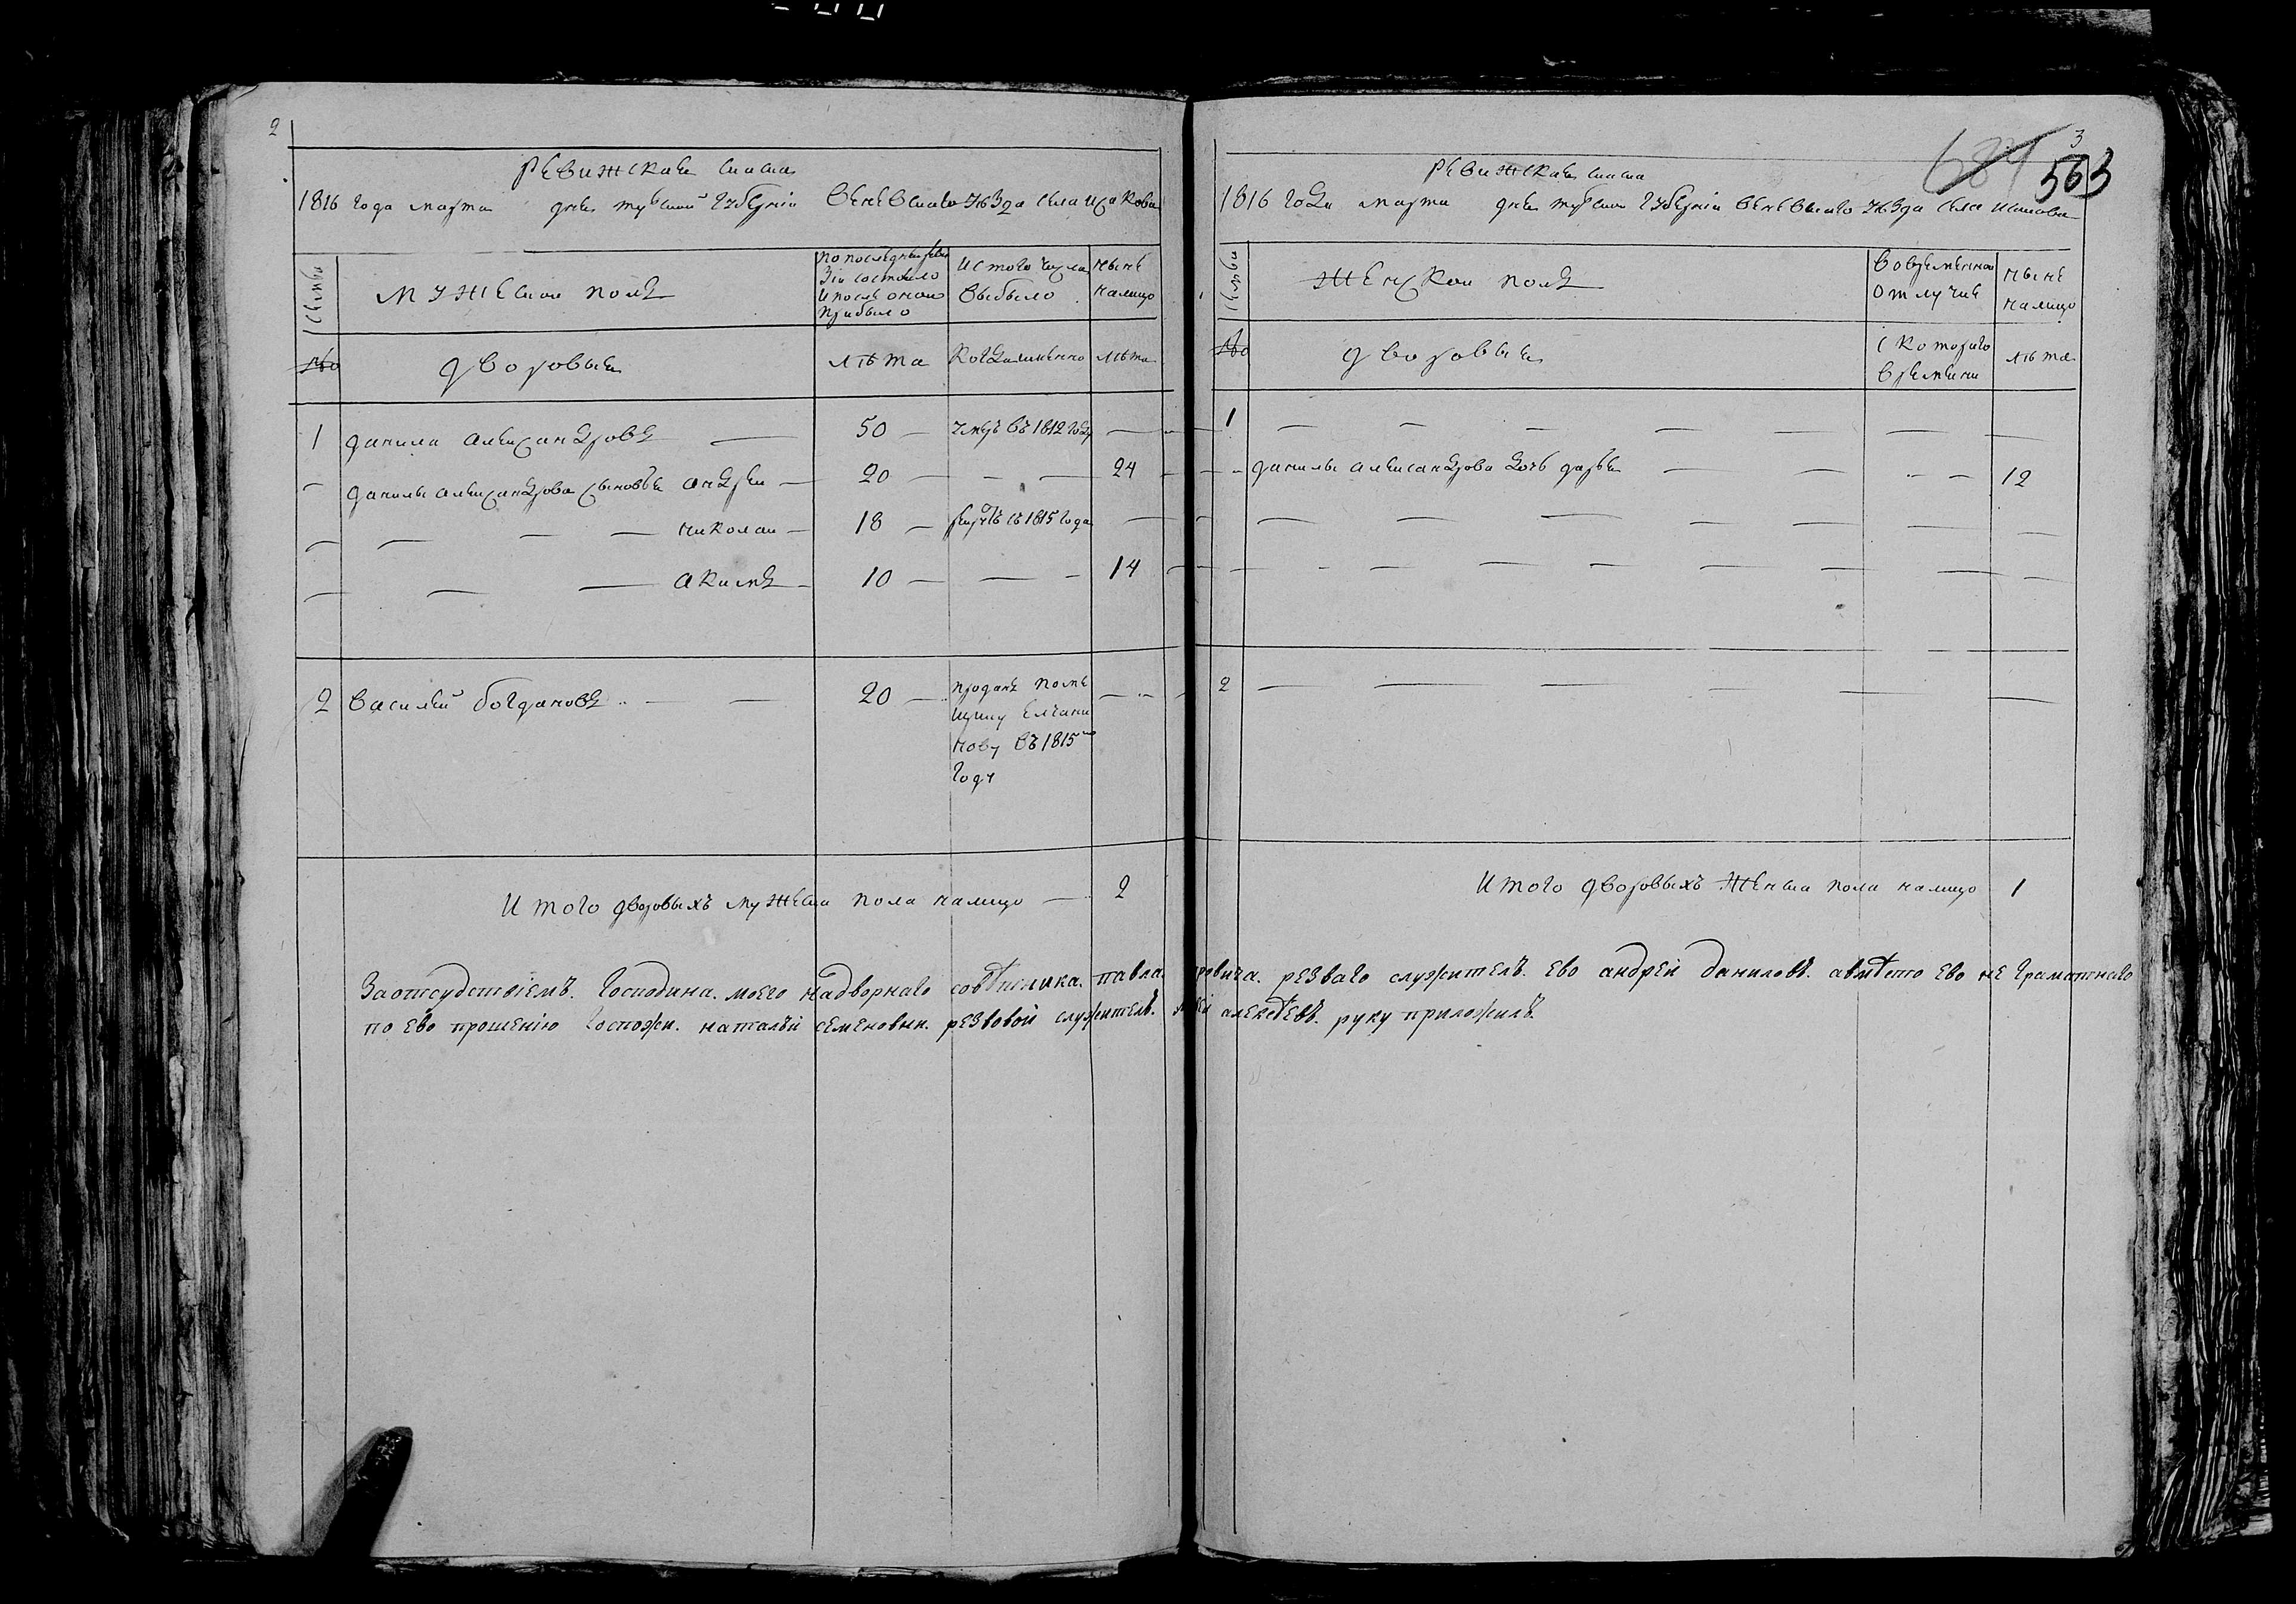 2
Ревижская скаска
1816 года марта дня тульской губерніи веневскаго уѣзда села исакова
семьи
мужеской полъ
по последней реви
зіи состояло
и после оного
прибыло
ис того числа
выбыло
ныне
налицо
№
дворовыя
лѣта
когда имянно
лѣта
1 данила александровъ 50 умеръ въ 1812 году
данилы александрова сыновья андреи 20 24
николаи 18 въ 1815 года
акимъ 10 14
2 василей богдановъ 20 проданъ поме
щику елчани
нову въ 1815мъ
году
Итого дворовыхъ мужеска пола налицо 2
3
563
ревижская скаска
1816 года марта дня тульской губерніи веневскаго уѣзда села исакова
семьи
женской полъ
во временной
отлучке
ныне
налицо
№
дворовыя
с которого
времени
лѣта
1
данилы александрова дочь дарья 12
2
Итого дворовыхъ женска пола налицо 1
Заотсудствіемъ. господина. моего надворнаго совѣтника. павла. ровича. резваго служитель. ево андрей даниловъ. авмѣсто ево не граматнаго
по ево прошенію госпожи. натальи семеновны. резвовой служитель. алексѣевъ. руку приложилъ.